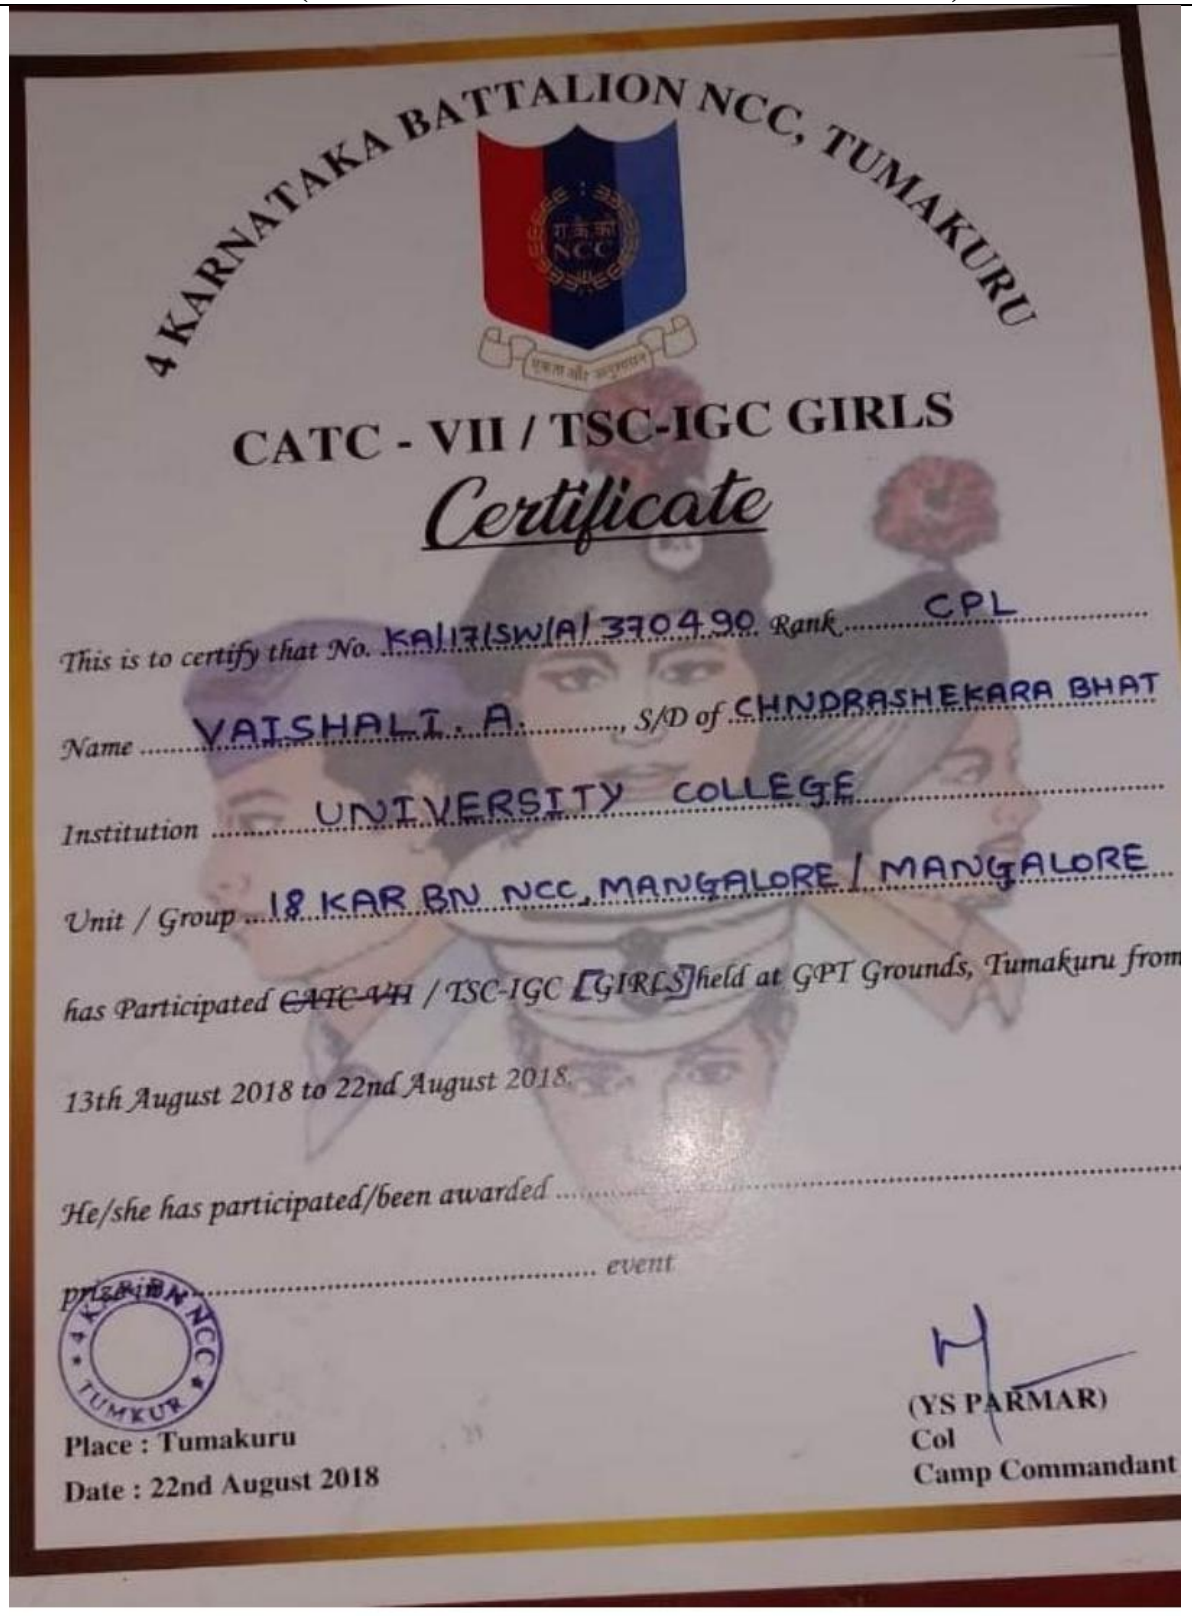 4 KARNATAKA BATTALION NCC, TUMAKURU
रा.कै.को
NCC
एकता और अनुशासन
CATC - VII / TSC-IGC GIRLS
Certificate
This is to certify that No. KA/17/SW/A/370490 Rank CPL
Name VAISHALI. A. , S/D of CHNDRASHEKARA BHAT
Institution UNIVERSITY COLLEGE
Unit / Group 18 KAR BN NCC, MANGALORE / MANGALORE
has Participated CATC-VII / TSC-IGC [GIRLS] held at GPT Grounds, Tumakuru from
13th August 2018 to 22nd August 2018.
He/she has participated/been awarded
prize in event
4 KAR BN NCC
TUMKUR
(YS PARMAR)
Place : Tumakuru
Col
Date : 22nd August 2018
Camp Commandant